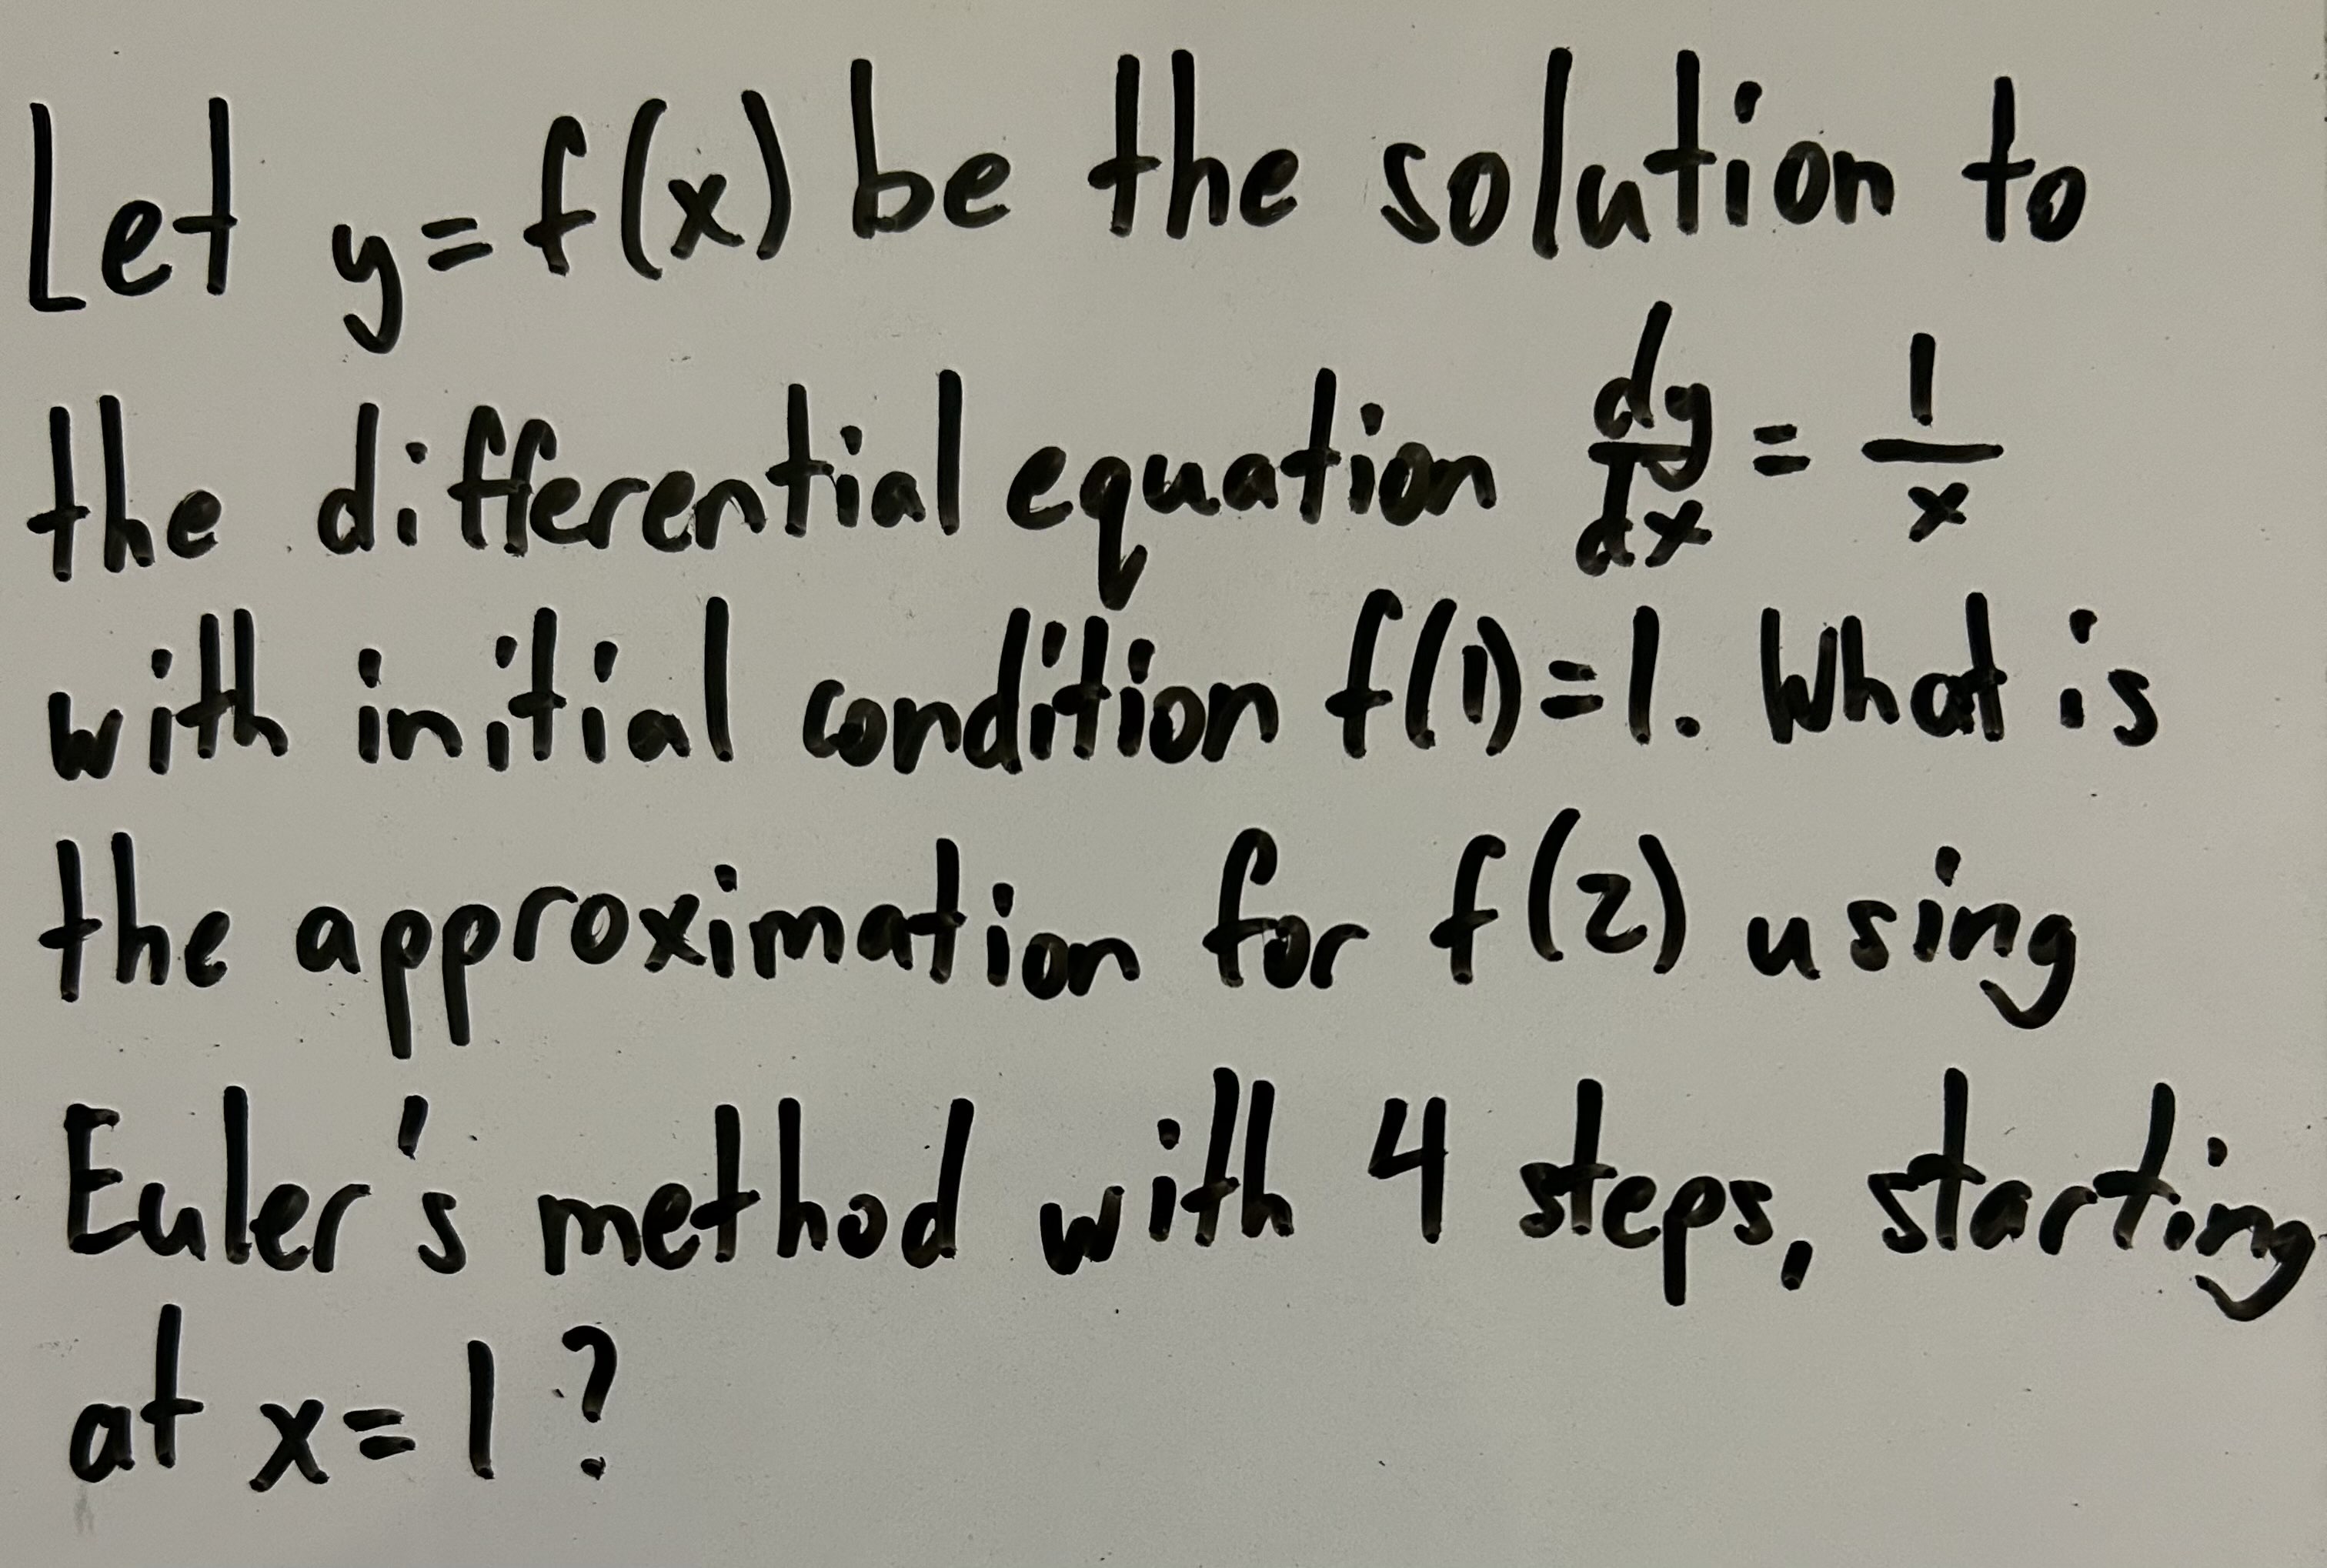 Let y=f(x) be the solution to
the differential equation dy/dx = 1/x
with initial condition f(1)=1. What is
the approximation for f(2) using
Euler's method with 4 steps, starting
at x=1?